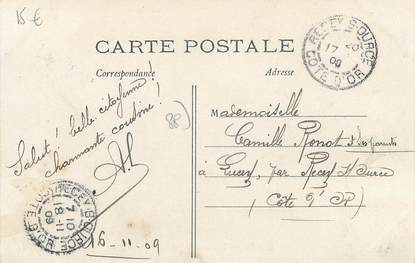 15 €
CARTE POSTALE
Correspondance
Adresse
RECEY-S-OURCE
17
09
COTE D'OR
Salut ! belle citoyenne !
charmante cousine !
A.L
16-11-09
Mademoiselle
Camille Ronot et ses parents
à Lucey, par Recey s/ Ource
(Côte d'Or)
RECEY-S-OURCE
7 10
18-11
09
COTE D'OR